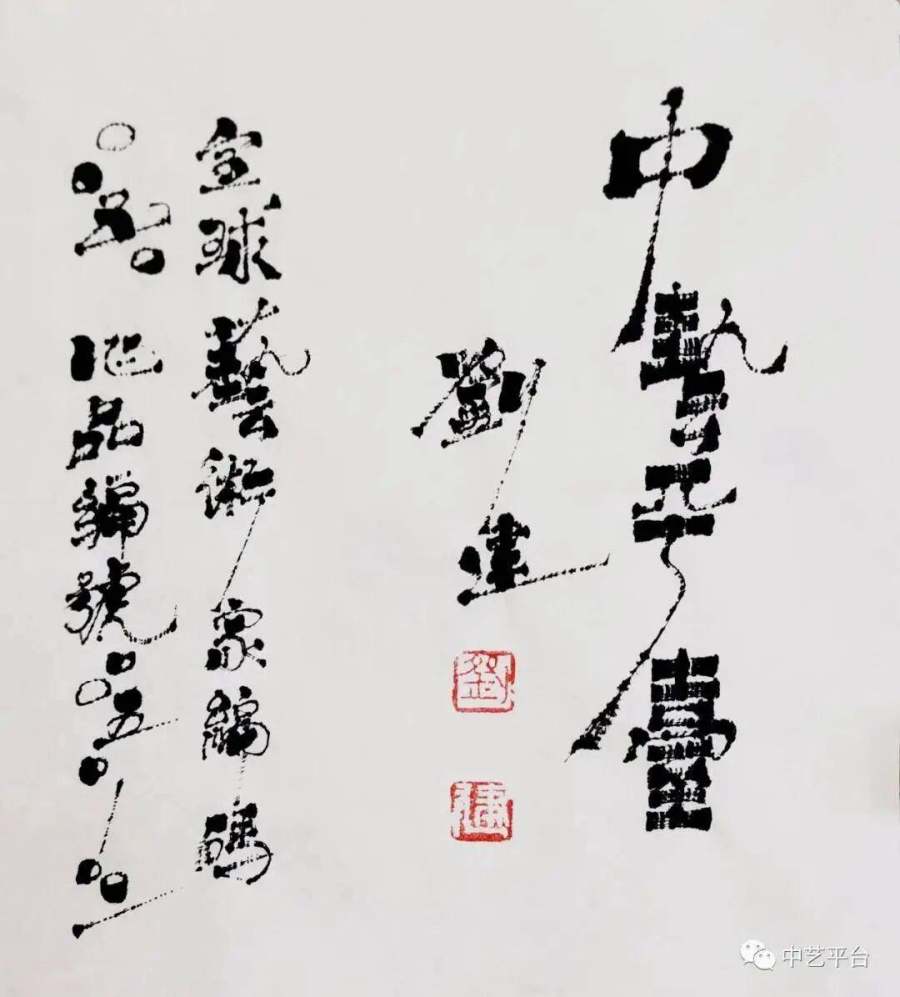 中藝平臺
劉建
劉
建
全球藝術家編碼
〇〇五〇 作品編號〇〇五〇/〇〇一
中艺平台